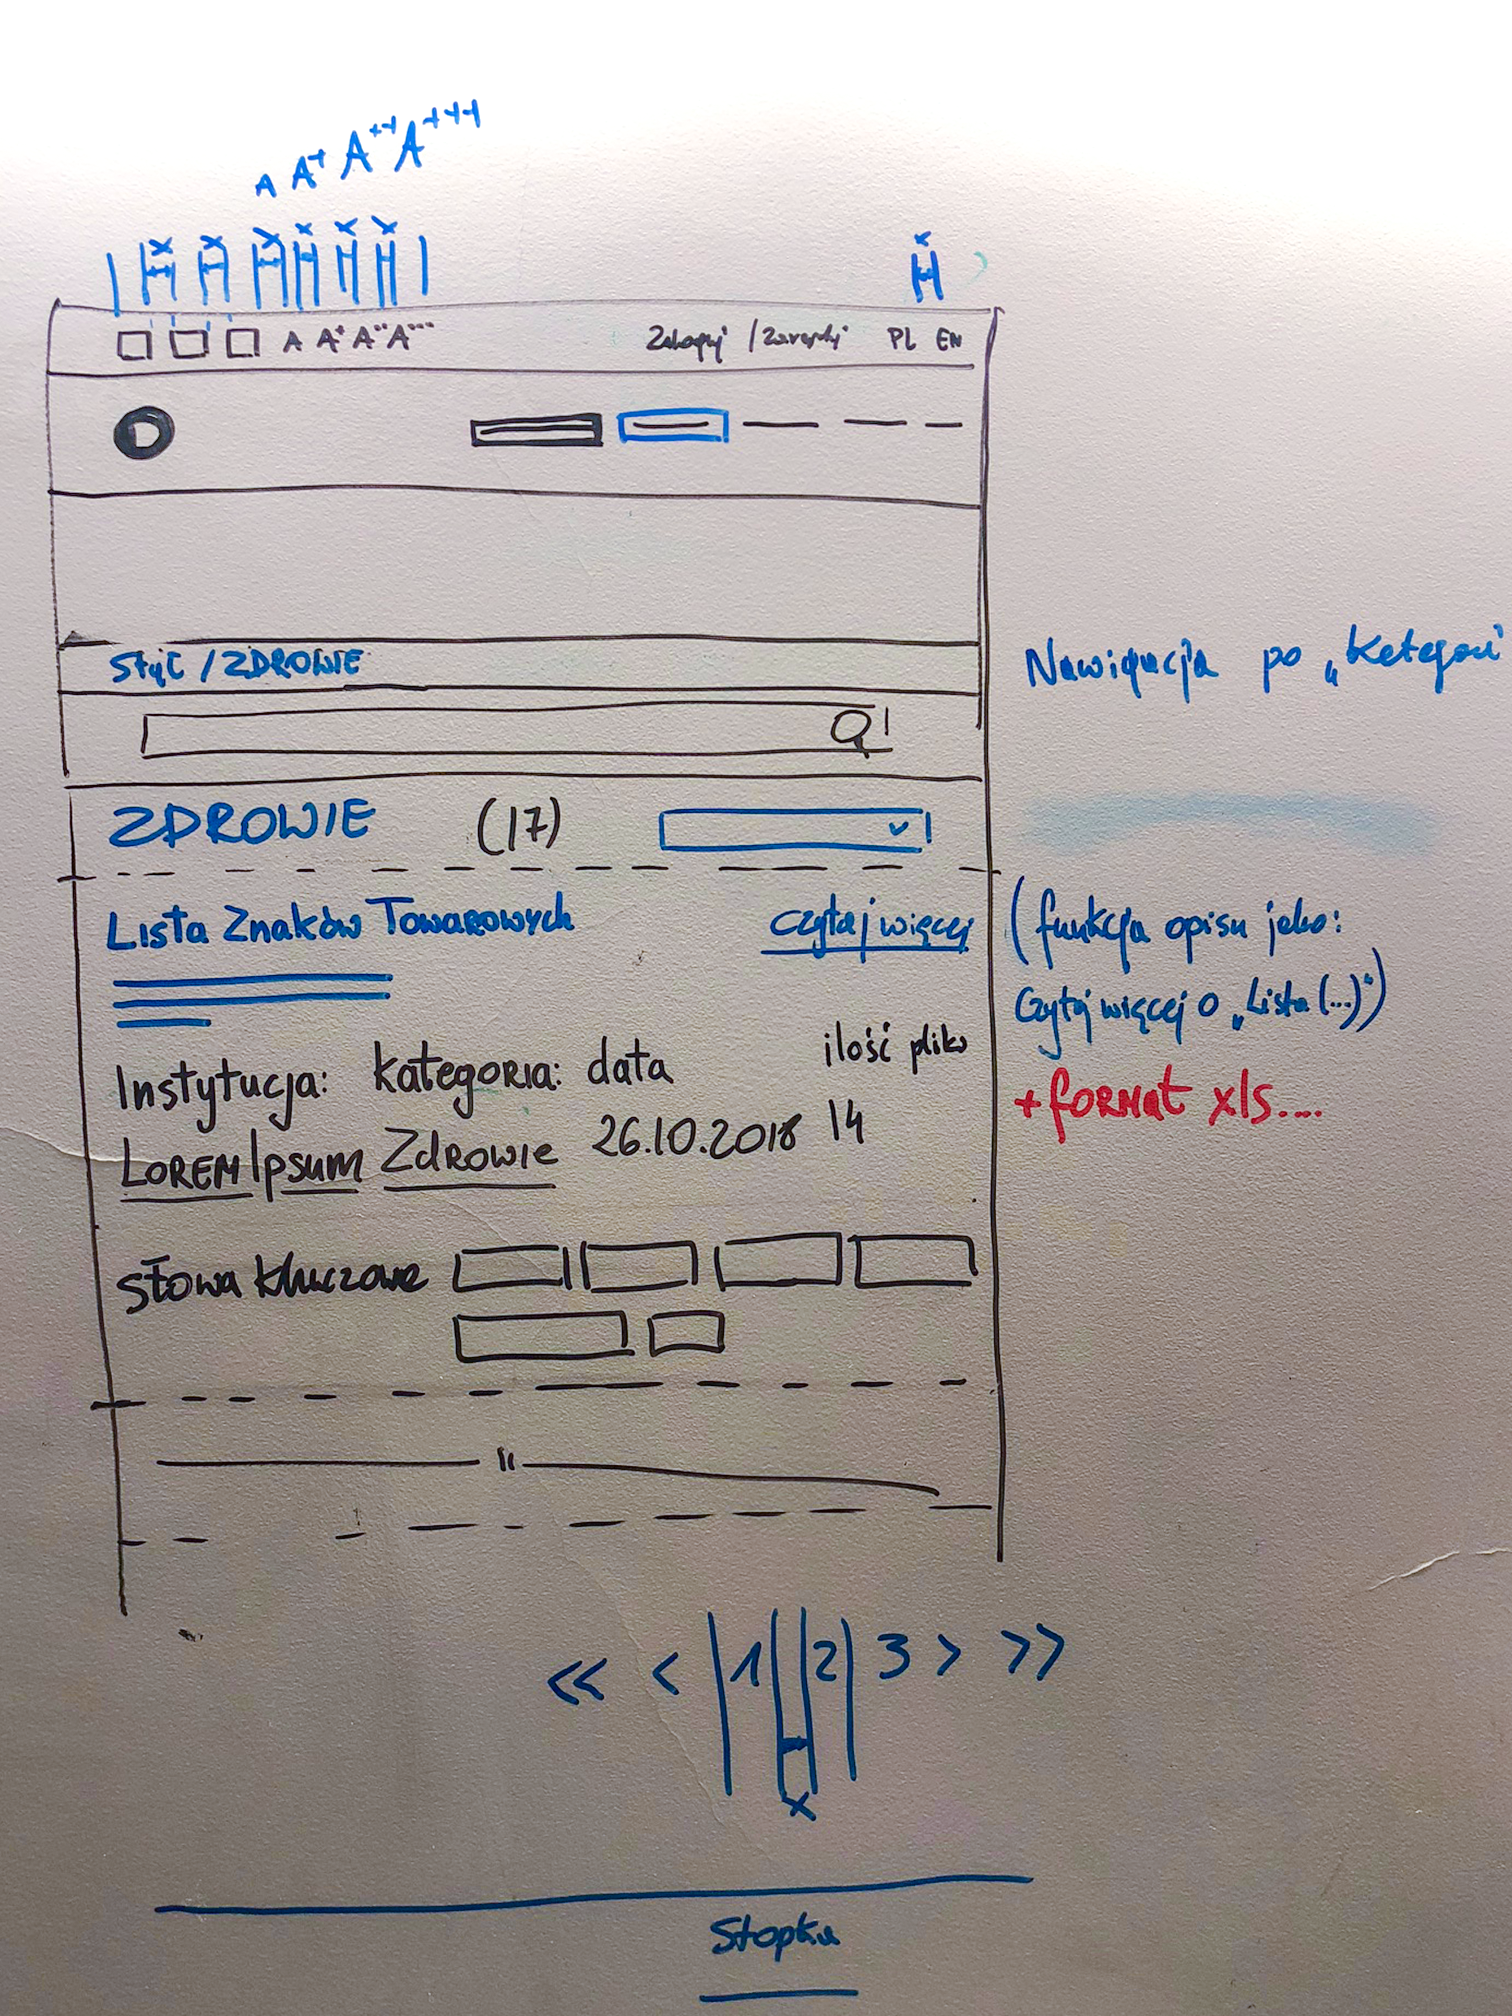 A A+ A++ A+++
x x x x x x x
A A+ A++ A+++ Zaloguj / Zarejestruj PL EN
/ ZDROWIE
Nawigacja po „Kategorii"
ZDROWIE (17)
Lista Znaków Towarowych czytaj więcej
(funkcja opisu jako:
Czytaj więcej o „Lista (...)")
+ format xls....
Instytucja: kategoria: data ilość plików
Lorem Ipsum Zdrowie 26.10.2018 14
słowa kluczowe
<< < 1 2 3 > >>
x
Stopka